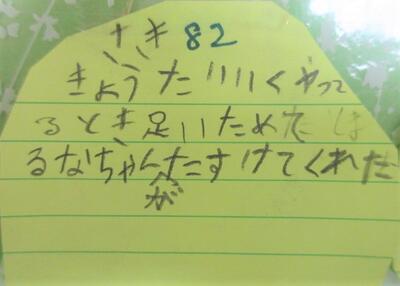 さき 82
きょうたいいくやって
るとき足いためたは
るなちゃんがたすけてくれた